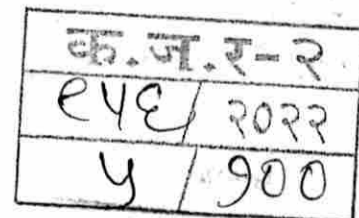 क.ज.र-२
९५६/२०२२
५/१००